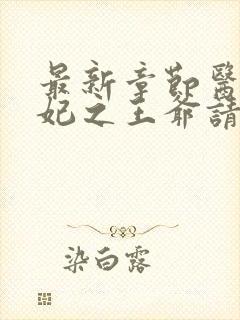 最新章節醫
妃之王爺請
染白露